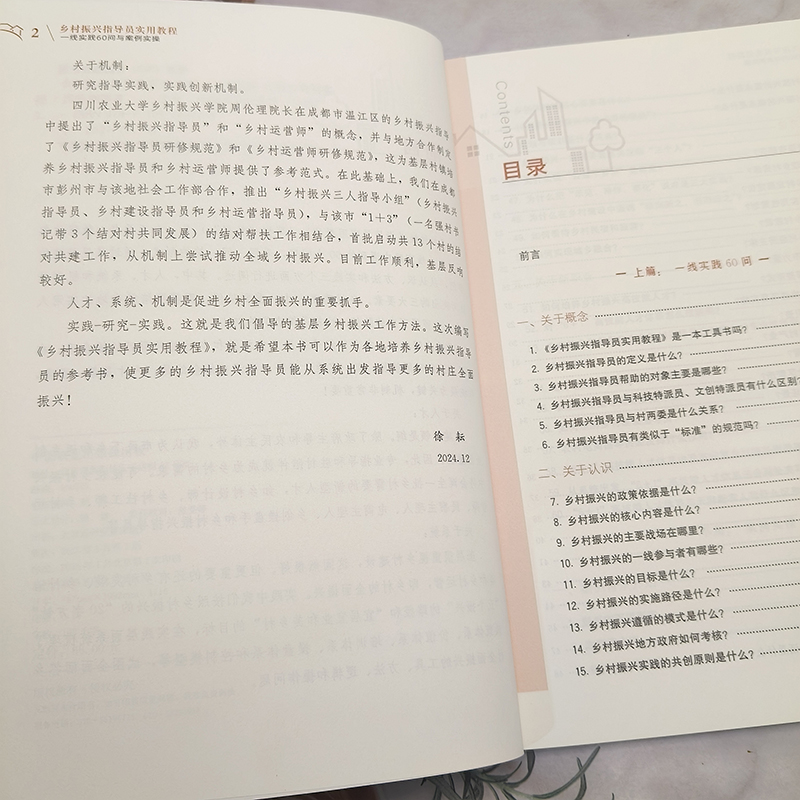 2 乡村振兴指导员实用教程
一线实践60问与案例实操
关于机制：
研究指导实践，实践创新机制。
四川农业大学乡村振兴学院周伦理院长在成都市温江区的乡村振兴指导
中提出了“乡村振兴指导员”和“乡村运营师”的概念，并与地方合作制定
了《乡村振兴指导员研修规范》和《乡村运营师研修规范》，这为基层村镇培
养乡村振兴指导员和乡村运营师提供了参考范式。在此基础上，我们在成都
市彭州市与该地社会工作部合作，推出“乡村振兴三人指导小组”（乡村振兴
指导员、乡村建设指导员和乡村运营指导员），与该市“1+3”（一名强村书
记带3个结对村共同发展）的结对帮扶工作相结合，首批启动共13个村的结
对共建工作，从机制上尝试推动全域乡村振兴。目前工作顺利，基层反响
较好。
人才、系统、机制是促进乡村全面振兴的重要抓手。
实践-研究-实践。这就是我们倡导的基层乡村振兴工作方法。这次编写
《乡村振兴指导员实用教程》，就是希望本书可以作为各地培养乡村振兴指导
员的参考书，使更多的乡村振兴指导员能从系统出发指导更多的村庄全面
振兴！
徐 耘
2024.12
Contents
目录
前言
上篇： 一线实践60问
一、关于概念
1. 《乡村振兴指导员实用教程》是一本工具书吗？
2. 乡村振兴指导员的定义是什么？
3. 乡村振兴指导员帮助的对象主要是哪些？
4. 乡村振兴指导员与科技特派员、文创特派员有什么区别？
5. 乡村振兴指导员与村两委是什么关系？
6. 乡村振兴指导员有类似于“标准”的规范吗？
二、关于认识
7. 乡村振兴的政策依据是什么？
8. 乡村振兴的核心内容是什么？
9. 乡村振兴的主要战场在哪里？
10. 乡村振兴的一线参与者有哪些？
11. 乡村振兴的目标是什么？
12. 乡村振兴的实施路径是什么？
13. 乡村振兴遵循的模式是什么？
14. 乡村振兴地方政府如何考核？
15. 乡村振兴实践的共创原则是什么？